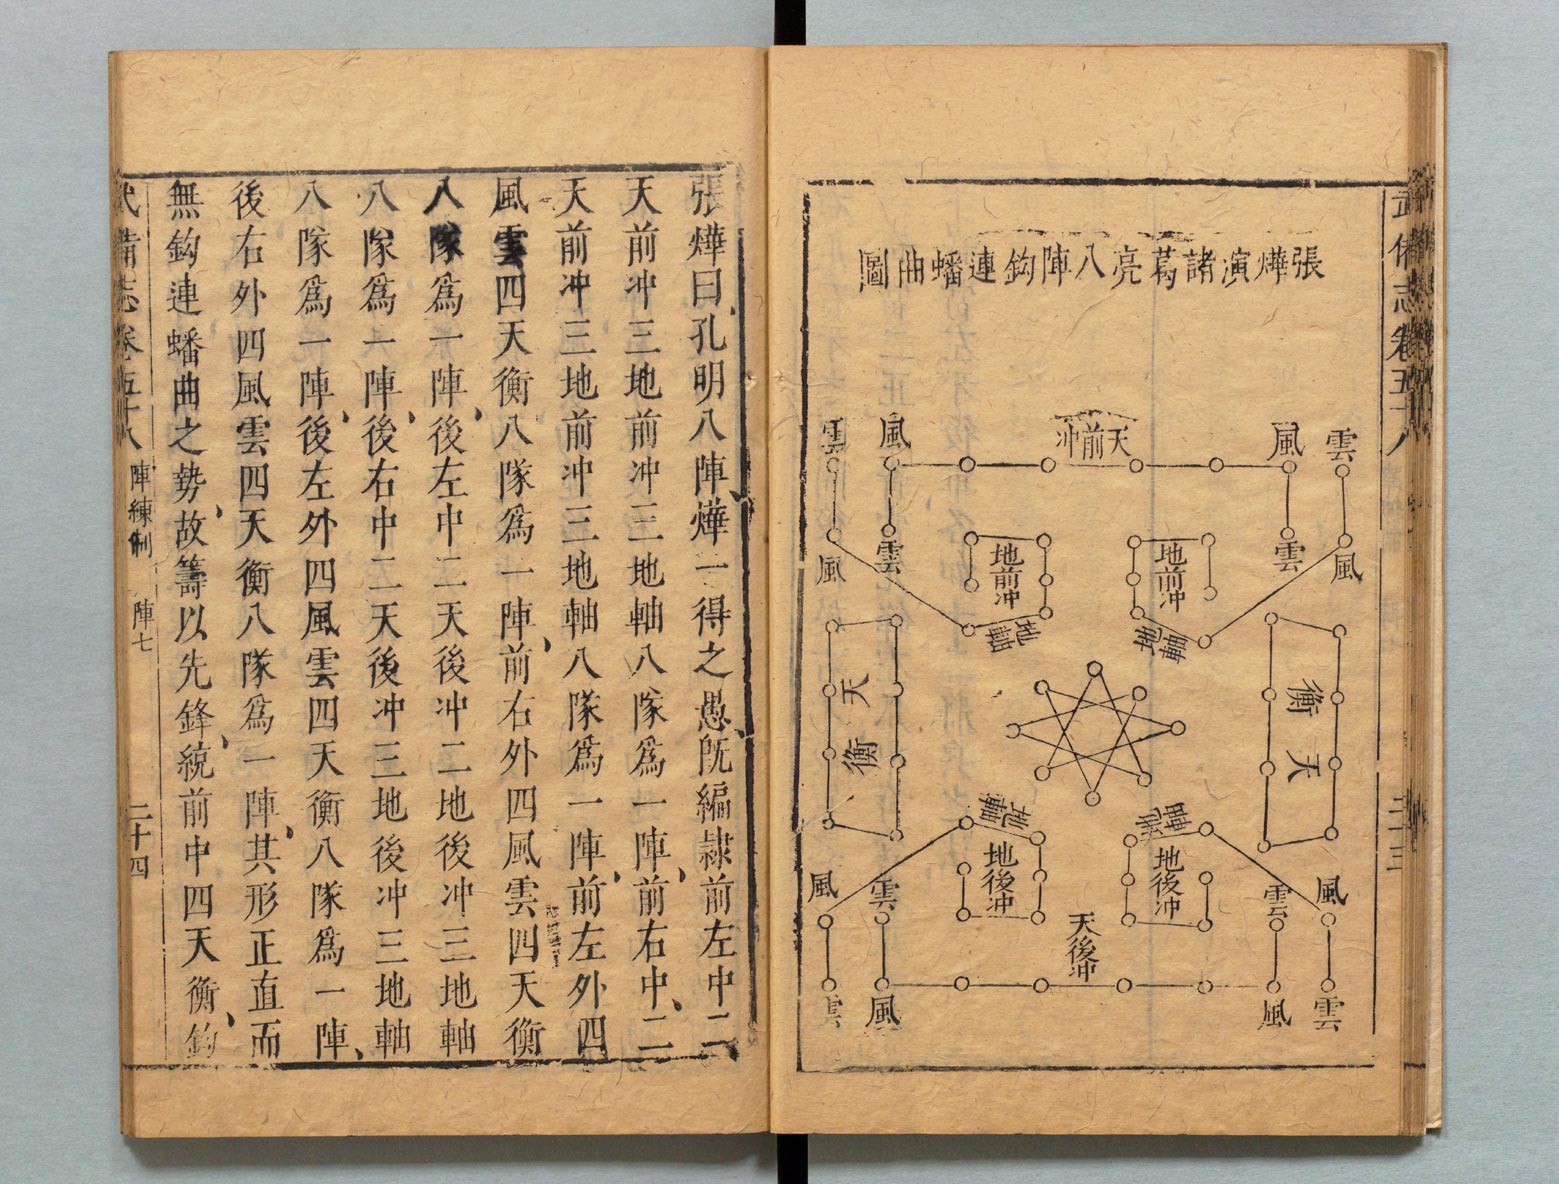 武備志卷五十八
二十三
張燁演諸葛亮八陣鈎連蟠曲圖
雲
風
天前冲
風
雲
風
雲
地前冲
地前冲
雲
風
地軸
地軸
衡天
天衡
地軸
地軸
地後冲
地後冲
風
雲
天後冲
雲
風
雲
風
風
雲
張燁曰孔明八陣燁一得之愚既編隷前左中二
天前冲三地前冲三地軸八隊爲一陣前右中二
天前冲三地前冲三地軸八隊爲一陣前左外四
風雲四天衡八隊爲一陣前右外四風雲四天衡
八隊爲一陣後左中二天後冲二地後冲三地軸
八隊爲一陣後右中二天後冲三地後冲三地軸
八隊爲一陣後左外四風雲四天衡八隊爲一陣
後右外四風雲四天衡八隊爲一陣其形正直而
無鈎連蟠曲之勢故籌以先鋒統前中四天衡鈎
武備志卷五十八
陣練制
陣七
二十四